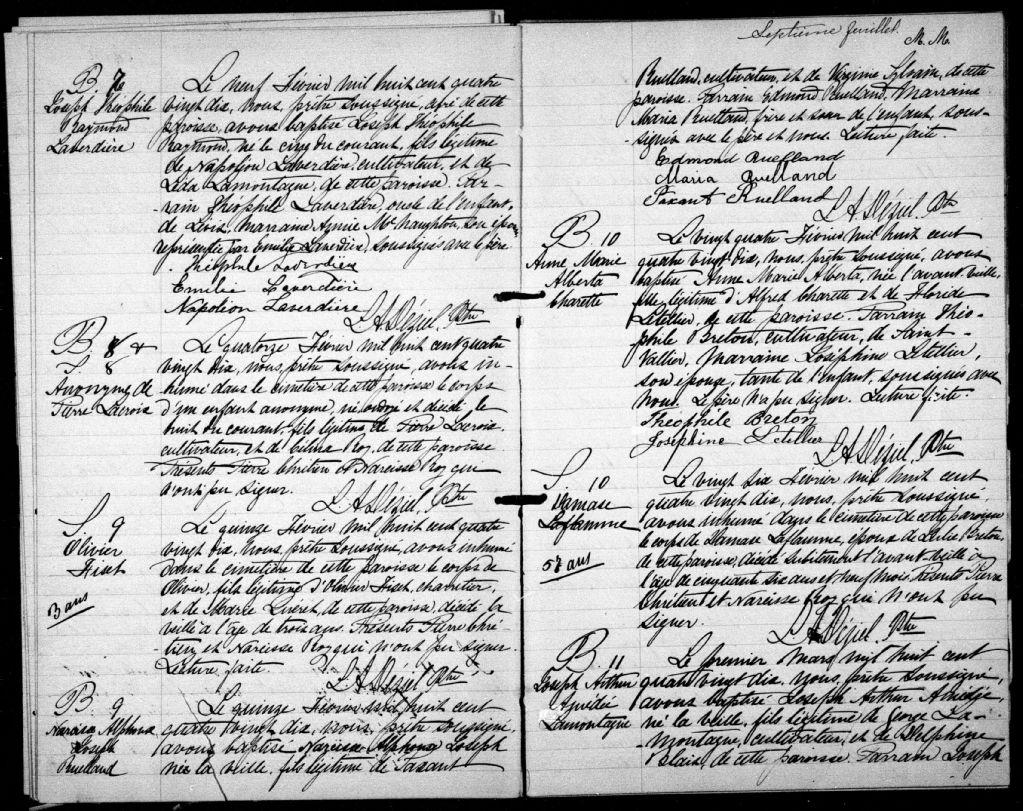 B. 7
Joseph Théophile
Raymond
Laverdière
Le neuf Février mil huit cent quatre
vingt dix, Nous, prêtre soussigné, curé de cette
paroisse, avons baptisé Joseph Théophile
Raymond, né le cinq du courant, fils légitime
de Napoléon Laverdière, cultivateur, et de
Léda Lamontagne, de cette paroisse. Par-
-rain Théophile Laverdière, oncle de l'enfant,
de Lévis, marraine Annie McNaughton, son épouse,
représentée par Emilie Laverdière, soussignés avec le père.
Théophile Laverdière
Emilie Laverdière
Napoléon Laverdière
L A Déziel, Ptre
B 8 &
S. 8
Anonyme de
Pierre Lacroix
Le quatorze Février mil huit cent quatre
vingt dix, nous, prêtre soussigné, avons in-
humé dans le cimetière de cette paroisse le corps
d'un enfant anonyme, né, ondoyé et décédé le
huit du courant, fils légitime de Pierre Lacroix
cultivateur, et de Roy, de cette paroisse
Présents Pierre Chrétien & Narcisse Roy qui
n'ont pu signer.
L A Déziel, Ptre
S 9
Olivier
Fiset
3 ans
Le quinze Février mil huit cent quatre
vingt dix, Nous, prêtre soussigné, avons inhumé
dans le cimetière de cette paroisse le corps de
Olivier, fils légitime d'Olivier Fiset, charretier,
et de Marie, de cette paroisse, décédé la
veille à l'âge de trois ans. Présents Pierre Chré-
tien, et Narcisse Roy qui n'ont pu signer.
Lecture faite
L A Déziel Ptre
B 9
Narcisse Alphonse
Joseph
Ruelland
Le quinze Février mil huit cent
quatre vingt dix, nous, prêtre soussigné,
avons baptisé Narcisse Alphonse Joseph
née la veille, fils légitime de Taxant
Septième feuillet.
M. M.
Ruelland, cultivateur, et de Virginie Sylvain, de cette
paroisse. Parrain Edmond Ruelland, Marraine
Maria Ruelland, frère et soeur de l'enfant, sous-
-signés avec le père et nous. Lecture faite
Edmond Ruelland
Maria Ruelland
Taxant Ruelland
L A Déziel, Ptre
B. 10
Anne Marie
Alberta
Charette
Le vingt quatre Février mil huit cent
quatre vingt dix, nous, prêtre soussigné, avons
baptisé Anne Marie Alberta, née l'avant veille,
fille légitime d'Alfred Charette et de Floride
Letellier, de cette paroisse. Parrain Théo-
phile Breton, cultivateur, de Saint
Vallier, Marraine Joséphine Letellier,
son épouse, tante de l'enfant, soussignés avec
nous. Le père n'a pu signer. Lecture faite.
Théophile Breton
Joséphine Letellier
L A Déziel, Ptre
S. 10
Damase
Laflamme
57 ans
Le vingt six Février mil huit cent
quatre vingt dix, nous, prêtre soussigné
avons inhumé dans le cimetière de cette paroisse
le corps de Damase Laflamme, époux de Breton,
de cette paroisse, décédé subitement l'avant veille à
l'âge de cinquante six ans et neuf mois. Présents Pierre
Chrétien et Narcisse Roy qui n'ont pu
signer.
L A Déziel, Ptre
B. 11
Joseph Arthur
Amédée
Lamontagne
Le premier Mars mil huit cent
quatre vingt dix, nous, prêtre soussigné,
avons baptisé Joseph Arthur Amédée,
né la veille, fils légitime de George La-
-montagne, cultivateur, et de Delphine
Blais, de cette paroisse. Parrain Joseph